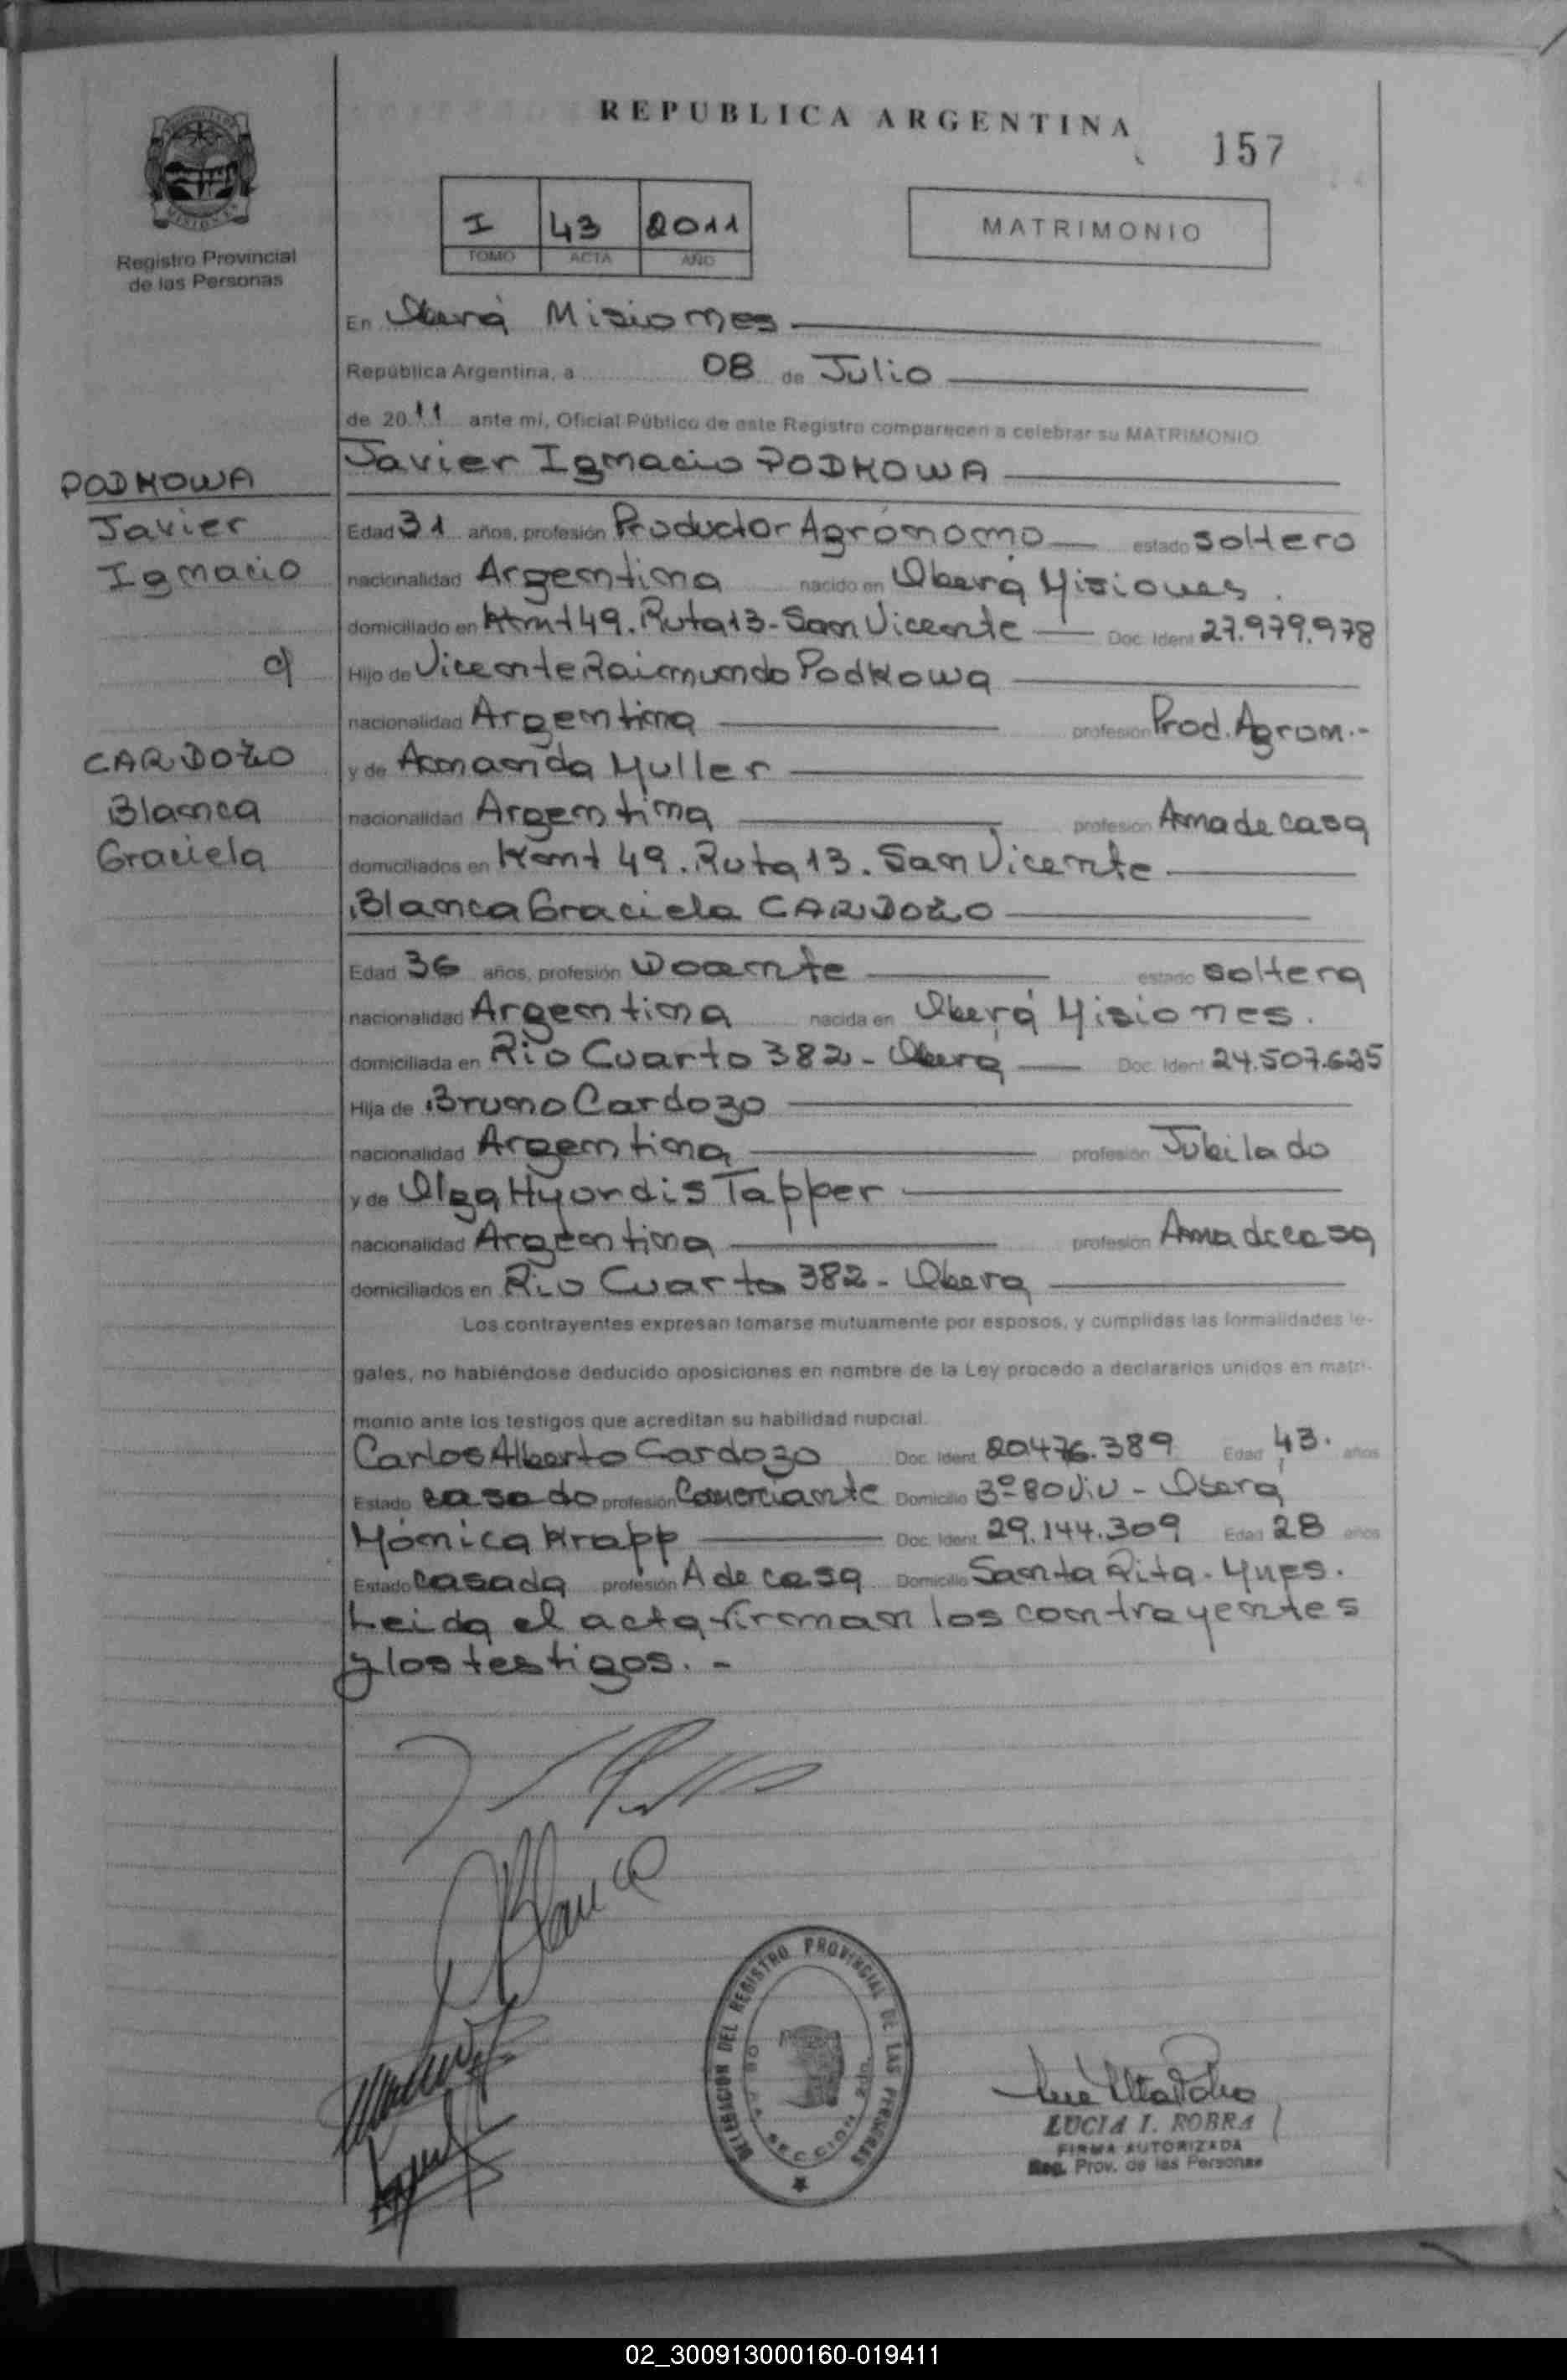 REPUBLICA ARGENTINA
157
I 43 2011
TOMO ACTA AÑO
MATRIMONIO
Registro Provincial
de las Personas
En Oberá Misiones
República Argentina, a 08 de Julio
de 2011 ante mi, Oficial Público de este Registro comparecen a celebrar su MATRIMONIO
Javier Ignacio PODKOWA
PODKOWA
Javier
Ignacio
c/
CARDOZO
Blanca
Graciela
Edad 31 años, profesión Productor Agrónomo estado soltero
nacionalidad Argentina nacido en Oberá Misiones.
domiciliado en Kmt 49. Ruta 13 - San Vicente Doc. Ident 27.979.978
Hijo de Vicente Raimundo Podkowa
nacionalidad Argentina profesión Prod. Agron.-
y de Amanda Muller
nacionalidad Argentina profesión Ama de casa
domiciliados en Kmt 49. Ruta 13. San Vicente
Blanca Graciela CARDOZO
Edad 36 años, profesión Docente estado soltera
nacionalidad Argentina nacida en Oberá Misiones.
domiciliada en Rio Cuarto 382 - Obera Doc. Ident 24.507.625
Hija de Bruno Cardozo
nacionalidad Argentina profesión Jubilado
y de Olga Hyordis Tapper
nacionalidad Argentina profesión Ama de casa
domiciliados en Rio Cuarto 382 - Obera
Los contrayentes expresan tomarse mutuamente por esposos, y cumplidas las formalidades le-
gales, no habiéndose deducido oposiciones en nombre de la Ley procedo a declararlos unidos en matri-
monio ante los testigos que acreditan su habilidad nupcial.
Carlos Alberto Cardozo Doc. Ident 20.476.389 Edad 43. años
Estado casado profesión Comerciante Domicilio 3º 80 Viv - Oberá
Mónica Krapp Doc. Ident 29.144.309 Edad 28 años
Estado casada profesión A de casa Domicilio Santa Rita - Mnes.
Leida el acta firman los contrayentes
y los testigos. -
Blanca
DELEGACION DEL REGISTRO PROVINCIAL DE LAS PERSONAS
SECCION 2da.
LUCIA I. ROBRA
FIRMA AUTORIZADA
Reg. Prov. de las Personas
02_300913000160-019411